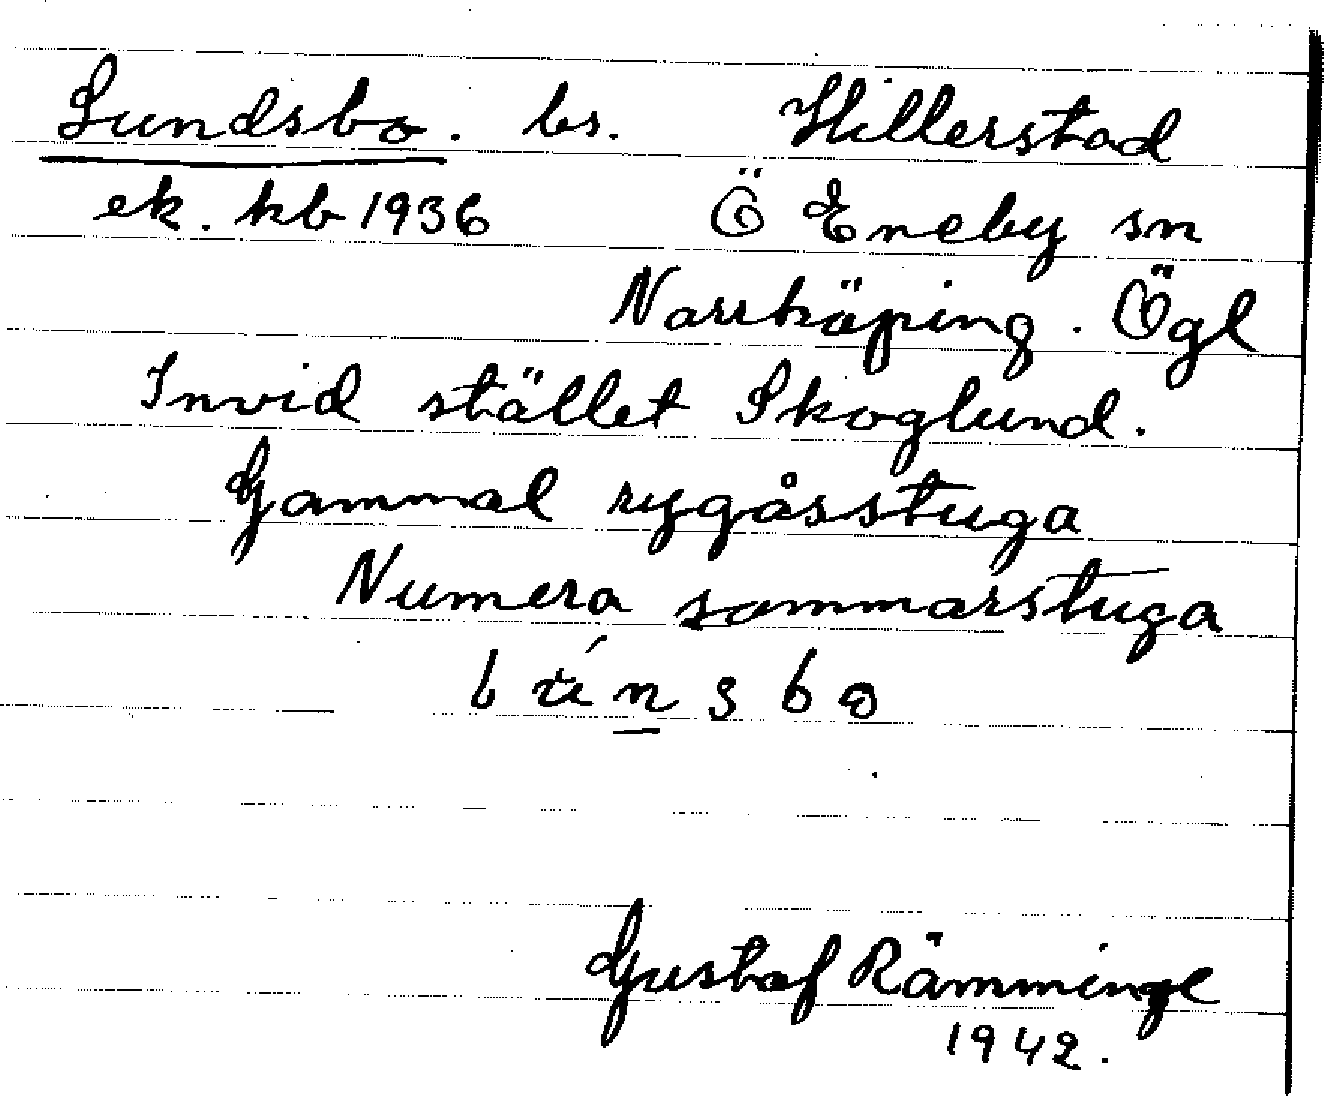 Lundsbo. bs. Hillerstad
ek. kb 1936 Ö Eneby sn
Norrköping. Ögl
Invid stället Skoglund.
Gammal rygåsstuga
Numera sommarstuga
Gustaf Rämminge
1942.